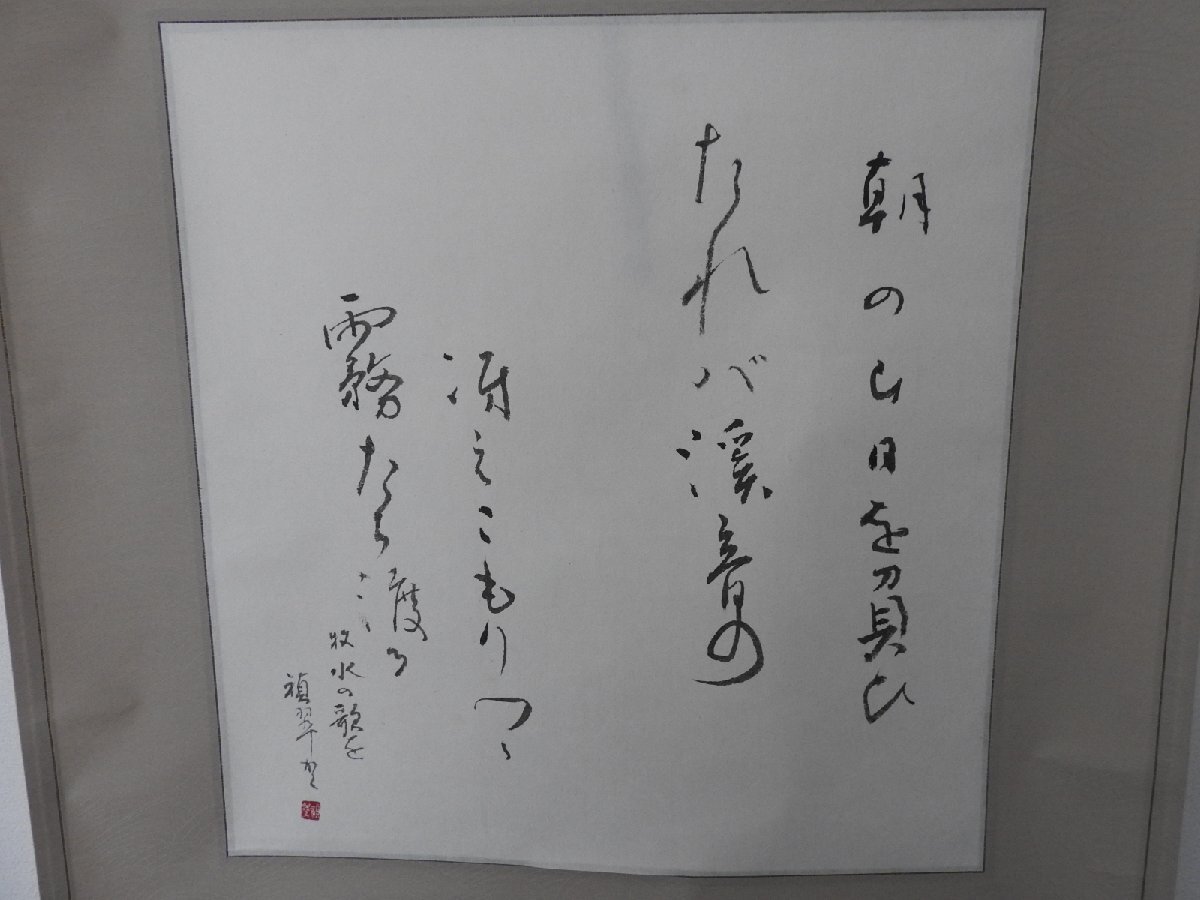 朝の山日を負ひ
たれバ渓音の
冴えこもりつゝ
霧たち渡る
牧水の歌を
禎翠かく